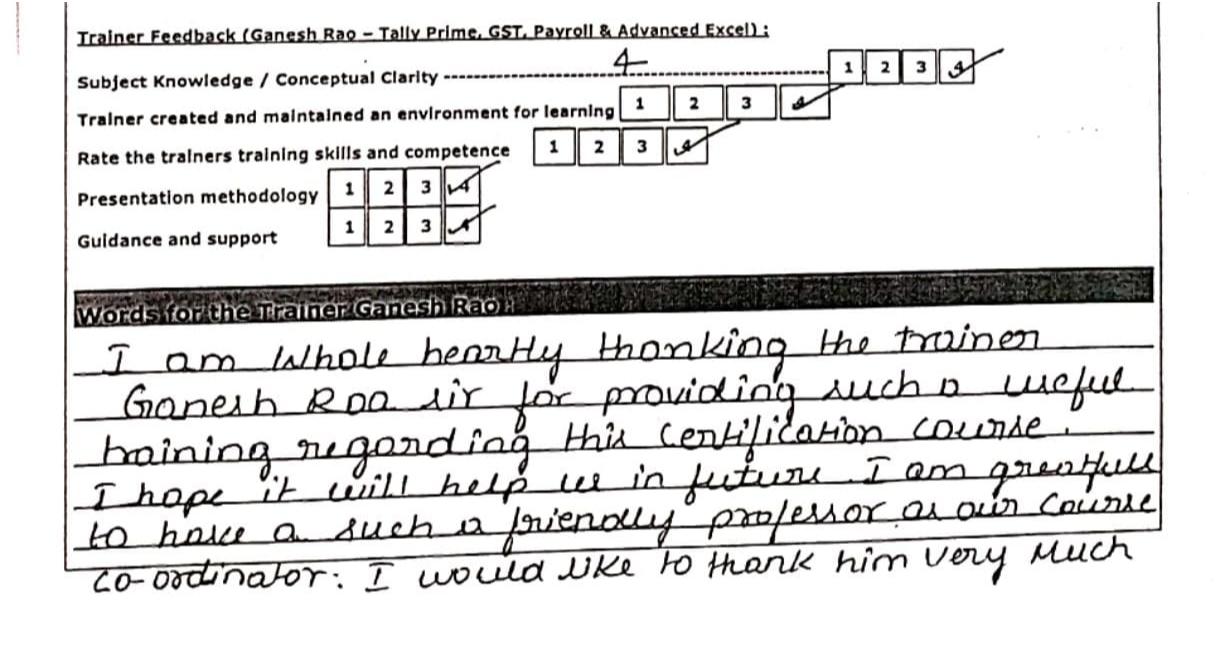 Trainer Feedback (Ganesh Rao – Tally Prime, GST, Payroll & Advanced Excel) :
4
Subject Knowledge / Conceptual Clarity ---------------------------------------- 1 2 3 4
Trainer created and maintained an environment for learning 1 2 3 4
Rate the trainers training skills and competence 1 2 3 4
Presentation methodology 1 2 3 4
Guidance and support 1 2 3 4
Words for the Trainer Ganesh Rao :
I am Whole heartly thanking the trainer
Ganesh Rao sir for providing such a useful
training regarding this Certification course.
I hope it will help us in future. I am greatfull
to have a such a friendly professor as our Course
co-ordinator. I would like to thank him very Much